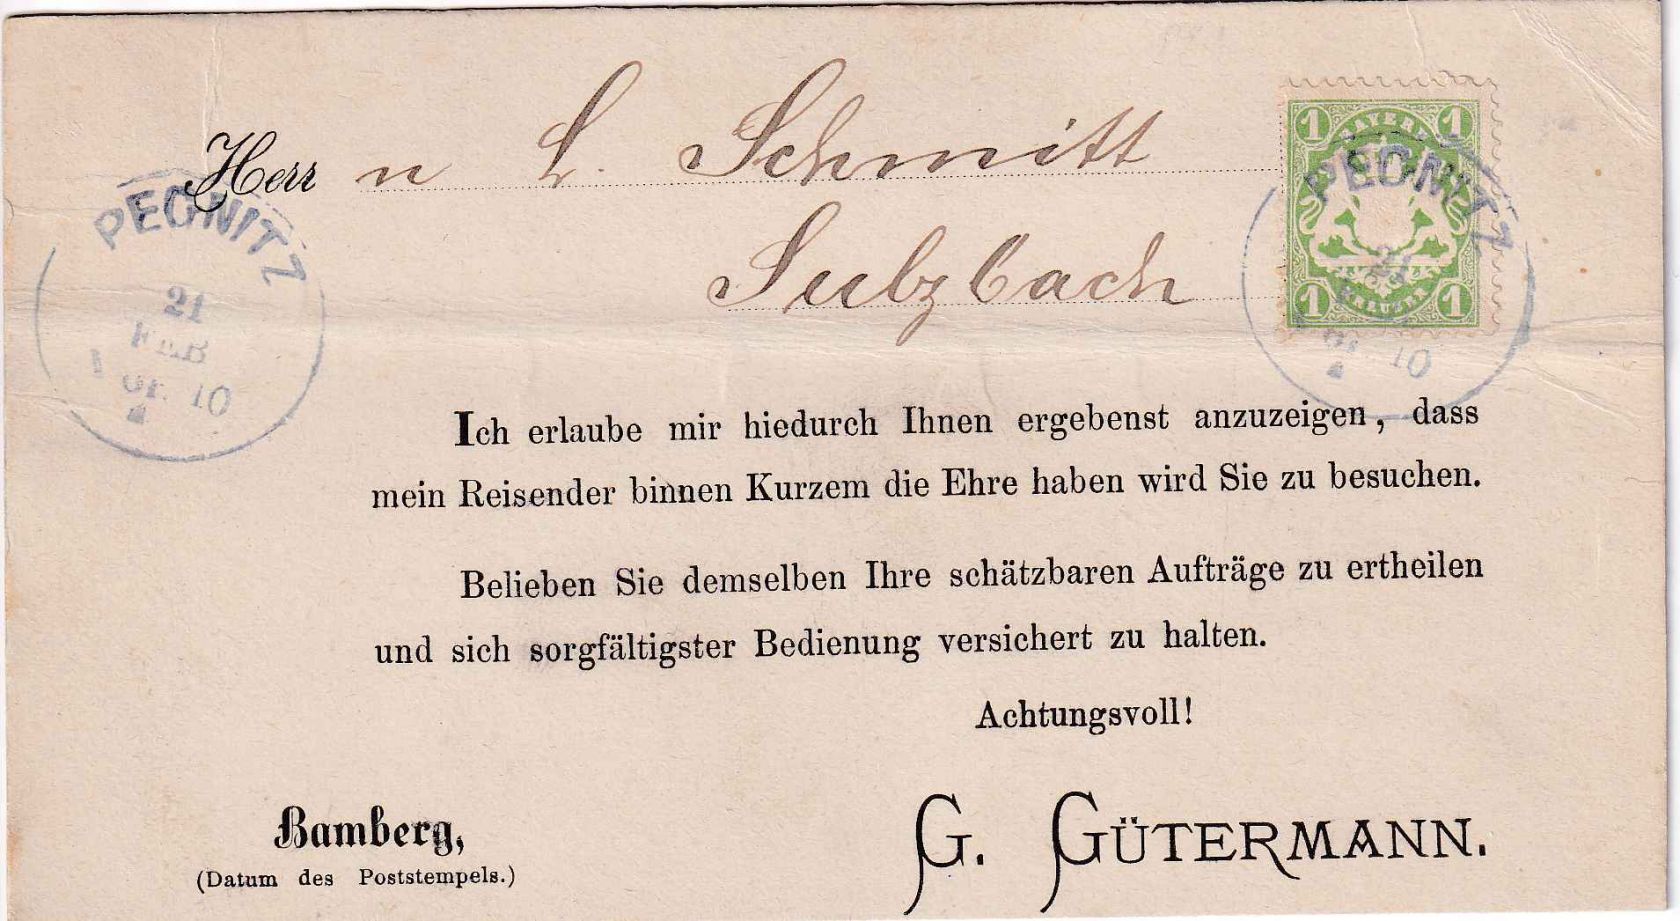 Herrn L. Schmitt
Sulzbach
PEGNITZ
21
FEB
10
1 1
BAYERN
KREUZER
1 1
PEGNITZ
21
10
Ich erlaube mir hiedurch Ihnen ergebenst anzuzeigen, dass
mein Reisender binnen Kurzem die Ehre haben wird Sie zu besuchen.
Belieben Sie demselben Ihre schätzbaren Aufträge zu ertheilen
und sich sorgfältigster Bedienung versichert zu halten.
Achtungsvoll!
Bamberg,
(Datum des Poststempels.)
G. GÜTERMANN.